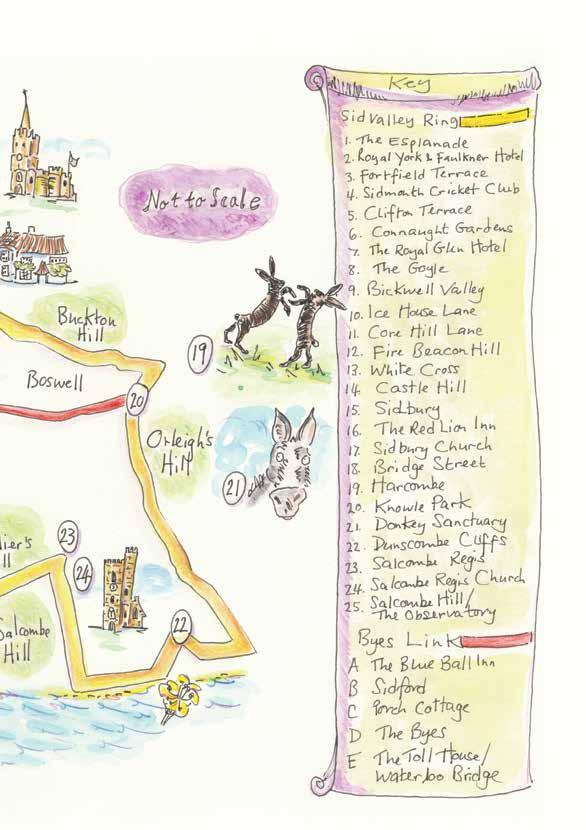 Key
Sid Valley Ring
1. The Esplanade
2. Royal York & Faulkner Hotel
3. Fortfield Terrace
4. Sidmouth Cricket Club
5. Clifton Terrace
6. Connaught Gardens
7. The Royal Glen Hotel
8. The Goyle
9. Bickwell Valley
10. Ice House Lane
11. Core Hill Lane
12. Fire Beacon Hill
13. White Cross
14. Castle Hill
15. Sidbury
16. The Red Lion Inn
17. Sidbury Church
18. Bridge Street
19. Harcombe
20. Knowle Park
21. Donkey Sanctuary
22. Dunscombe Cliffs
23. Salcombe Regis
24. Salcombe Regis Church
25. Salcombe Hill/
The Observatory
Byes Link
A The Blue Ball Inn
B Sidford
C Porch Cottage
D The Byes
E The Toll House/
Waterloo Bridge
Not to Scale
Buckton
Hill
19
Boswell
20
Orleigh's
Hill
21
23
24
22
Salcombe
Hill